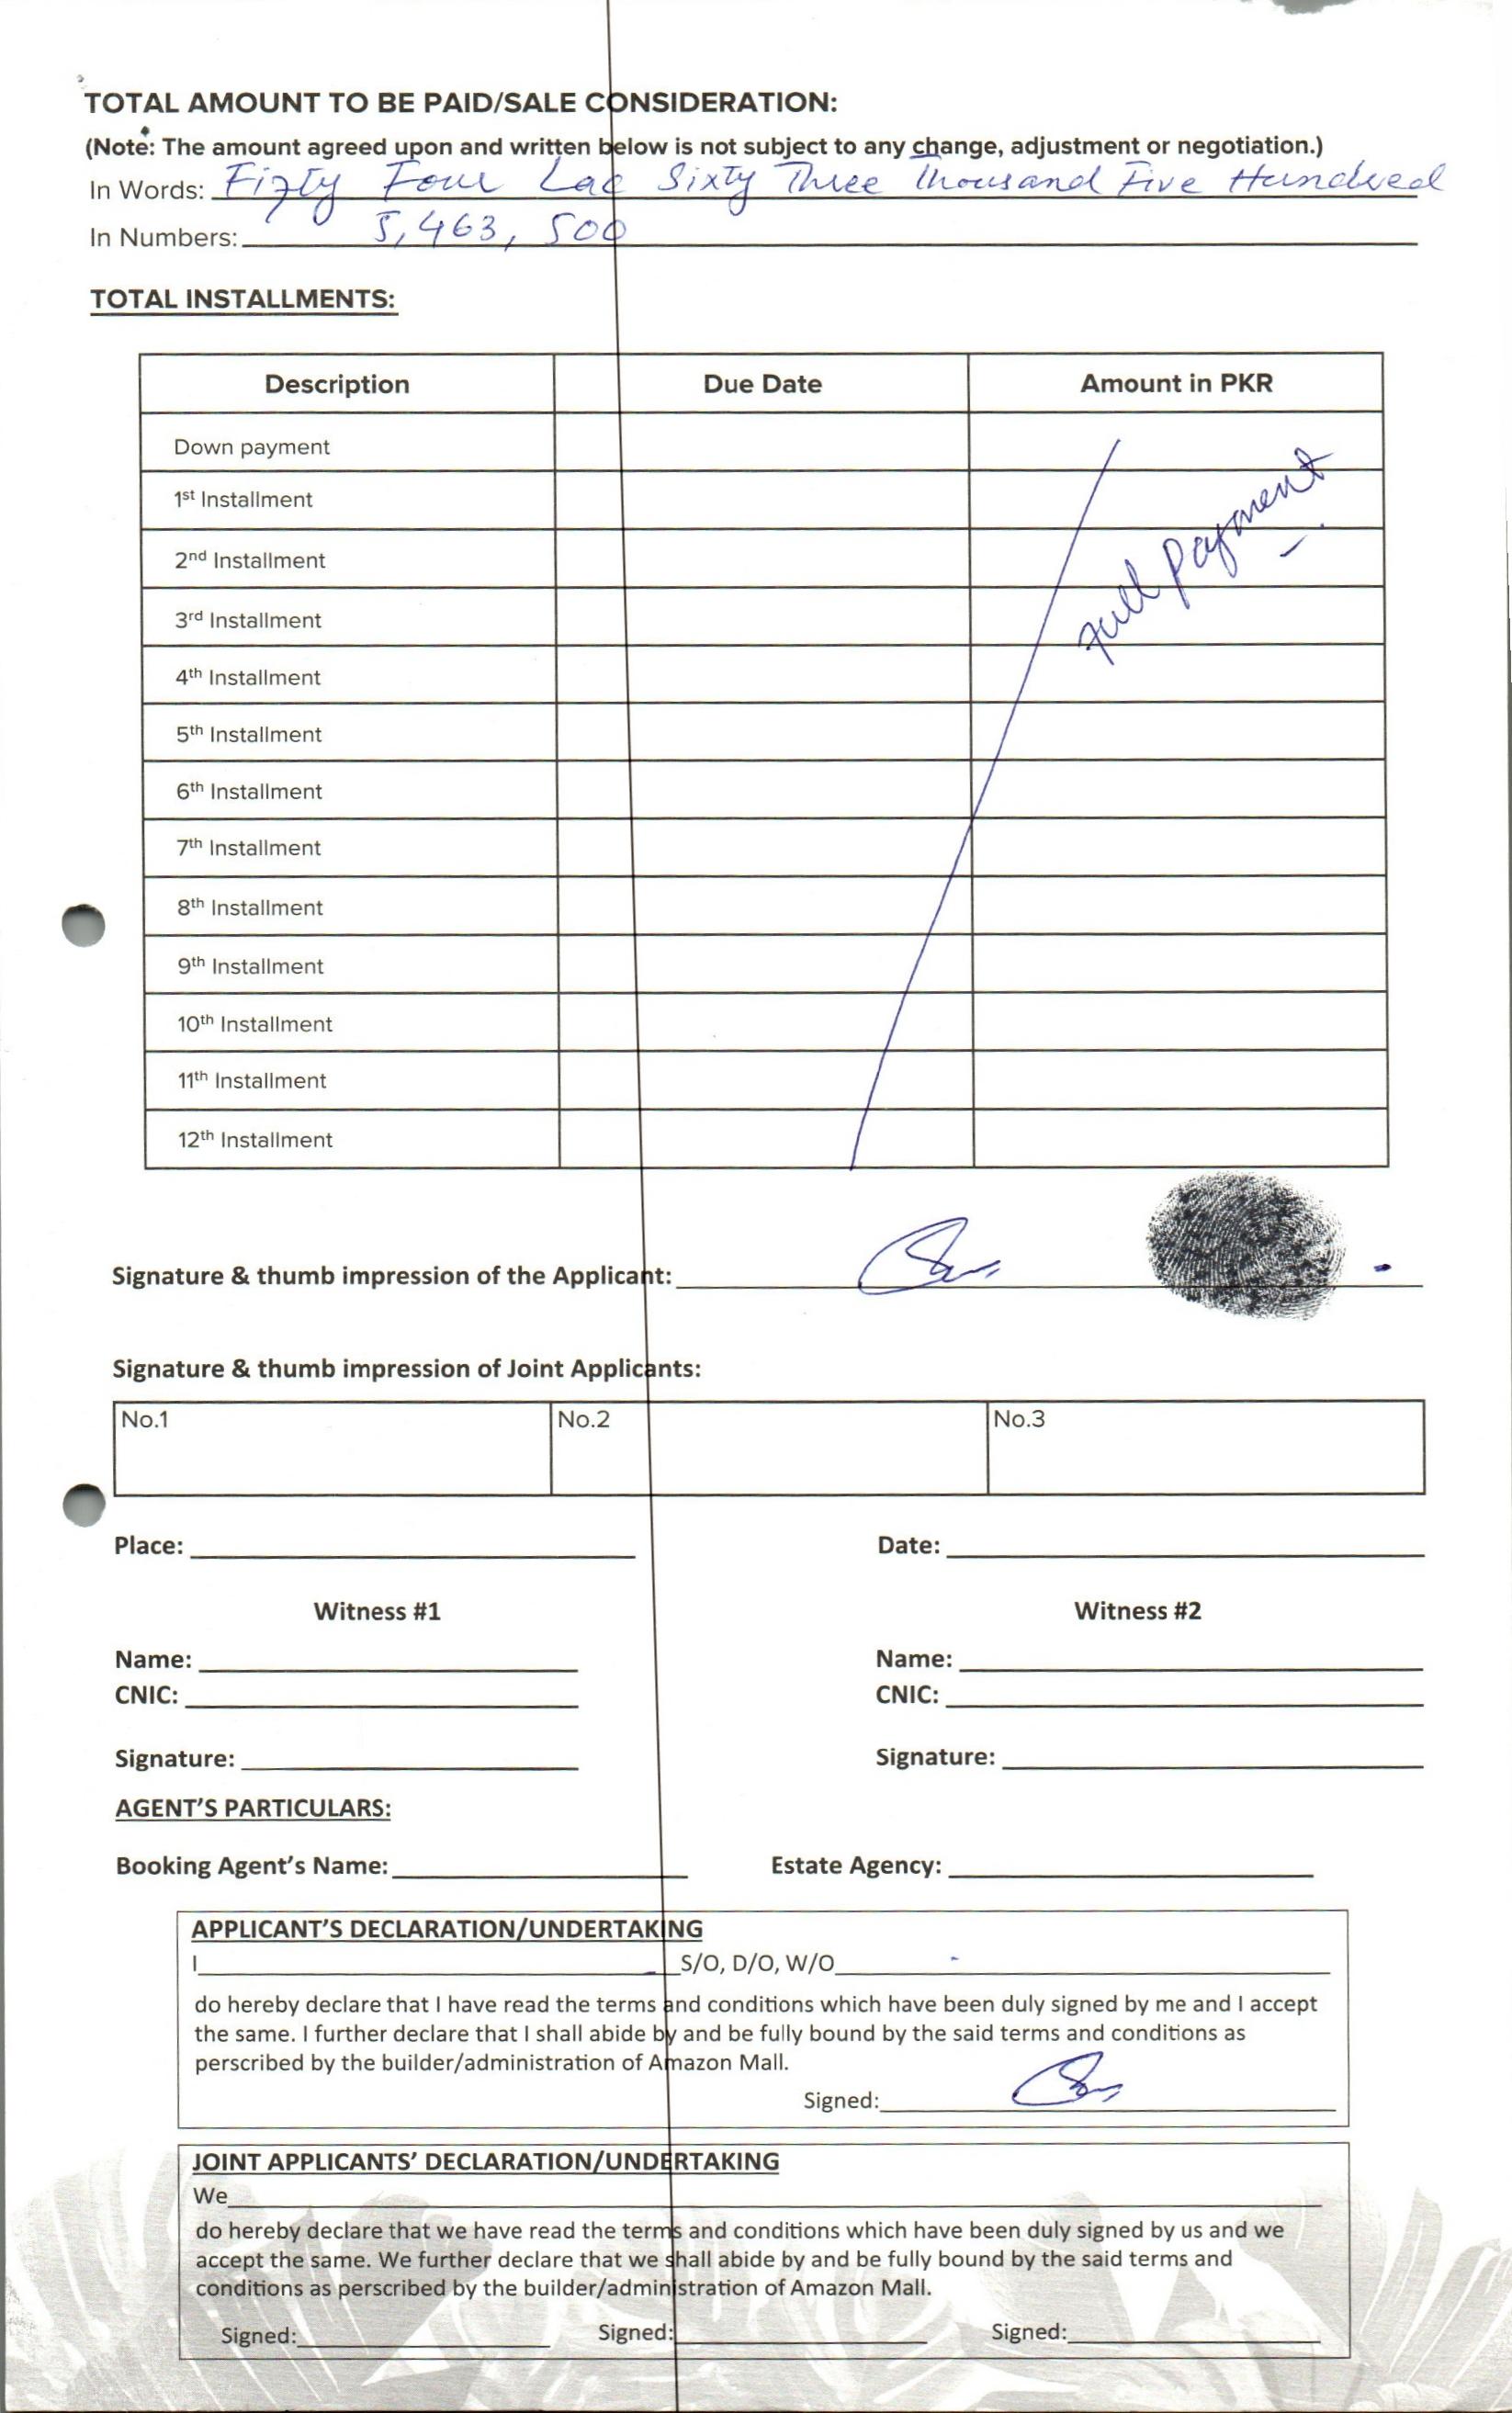 TOTAL AMOUNT TO BE PAID/SALE CONSIDERATION:
(Note: The amount agreed upon and written below is not subject to any change, adjustment or negotiation.)
In Words: Fifty Four Lac Sixty Three Thousand Five Hundred
In Numbers: 5,463,500
TOTAL INSTALLMENTS:
Description Due Date Amount in PKR
Down payment
1st Installment
2nd Installment
3rd Installment
4th Installment
5th Installment
6th Installment
7th Installment
8th Installment
9th Installment
10th Installment
11th Installment
12th Installment
Full Payment
Signature & thumb impression of the Applicant:
Signature & thumb impression of Joint Applicants:
No.1 No.2 No.3
Place: Date:
Witness #1 Witness #2
Name: Name:
CNIC: CNIC:
Signature: Signature:
AGENT'S PARTICULARS:
Booking Agent's Name: Estate Agency:
APPLICANT'S DECLARATION/UNDERTAKING
I S/O, D/O, W/O
do hereby declare that I have read the terms and conditions which have been duly signed by me and I accept
the same. I further declare that I shall abide by and be fully bound by the said terms and conditions as
perscribed by the builder/administration of Amazon Mall.
Signed:
JOINT APPLICANTS' DECLARATION/UNDERTAKING
We
do hereby declare that we have read the terms and conditions which have been duly signed by us and we
accept the same. We further declare that we shall abide by and be fully bound by the said terms and
conditions as perscribed by the builder/administration of Amazon Mall.
Signed: Signed: Signed: